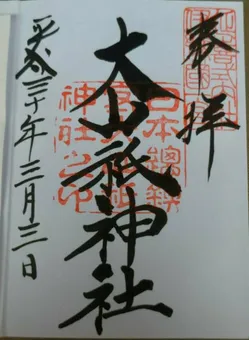 奉拝
日本總鎮
大山祇神社
神社之印
平成三十年三月三日